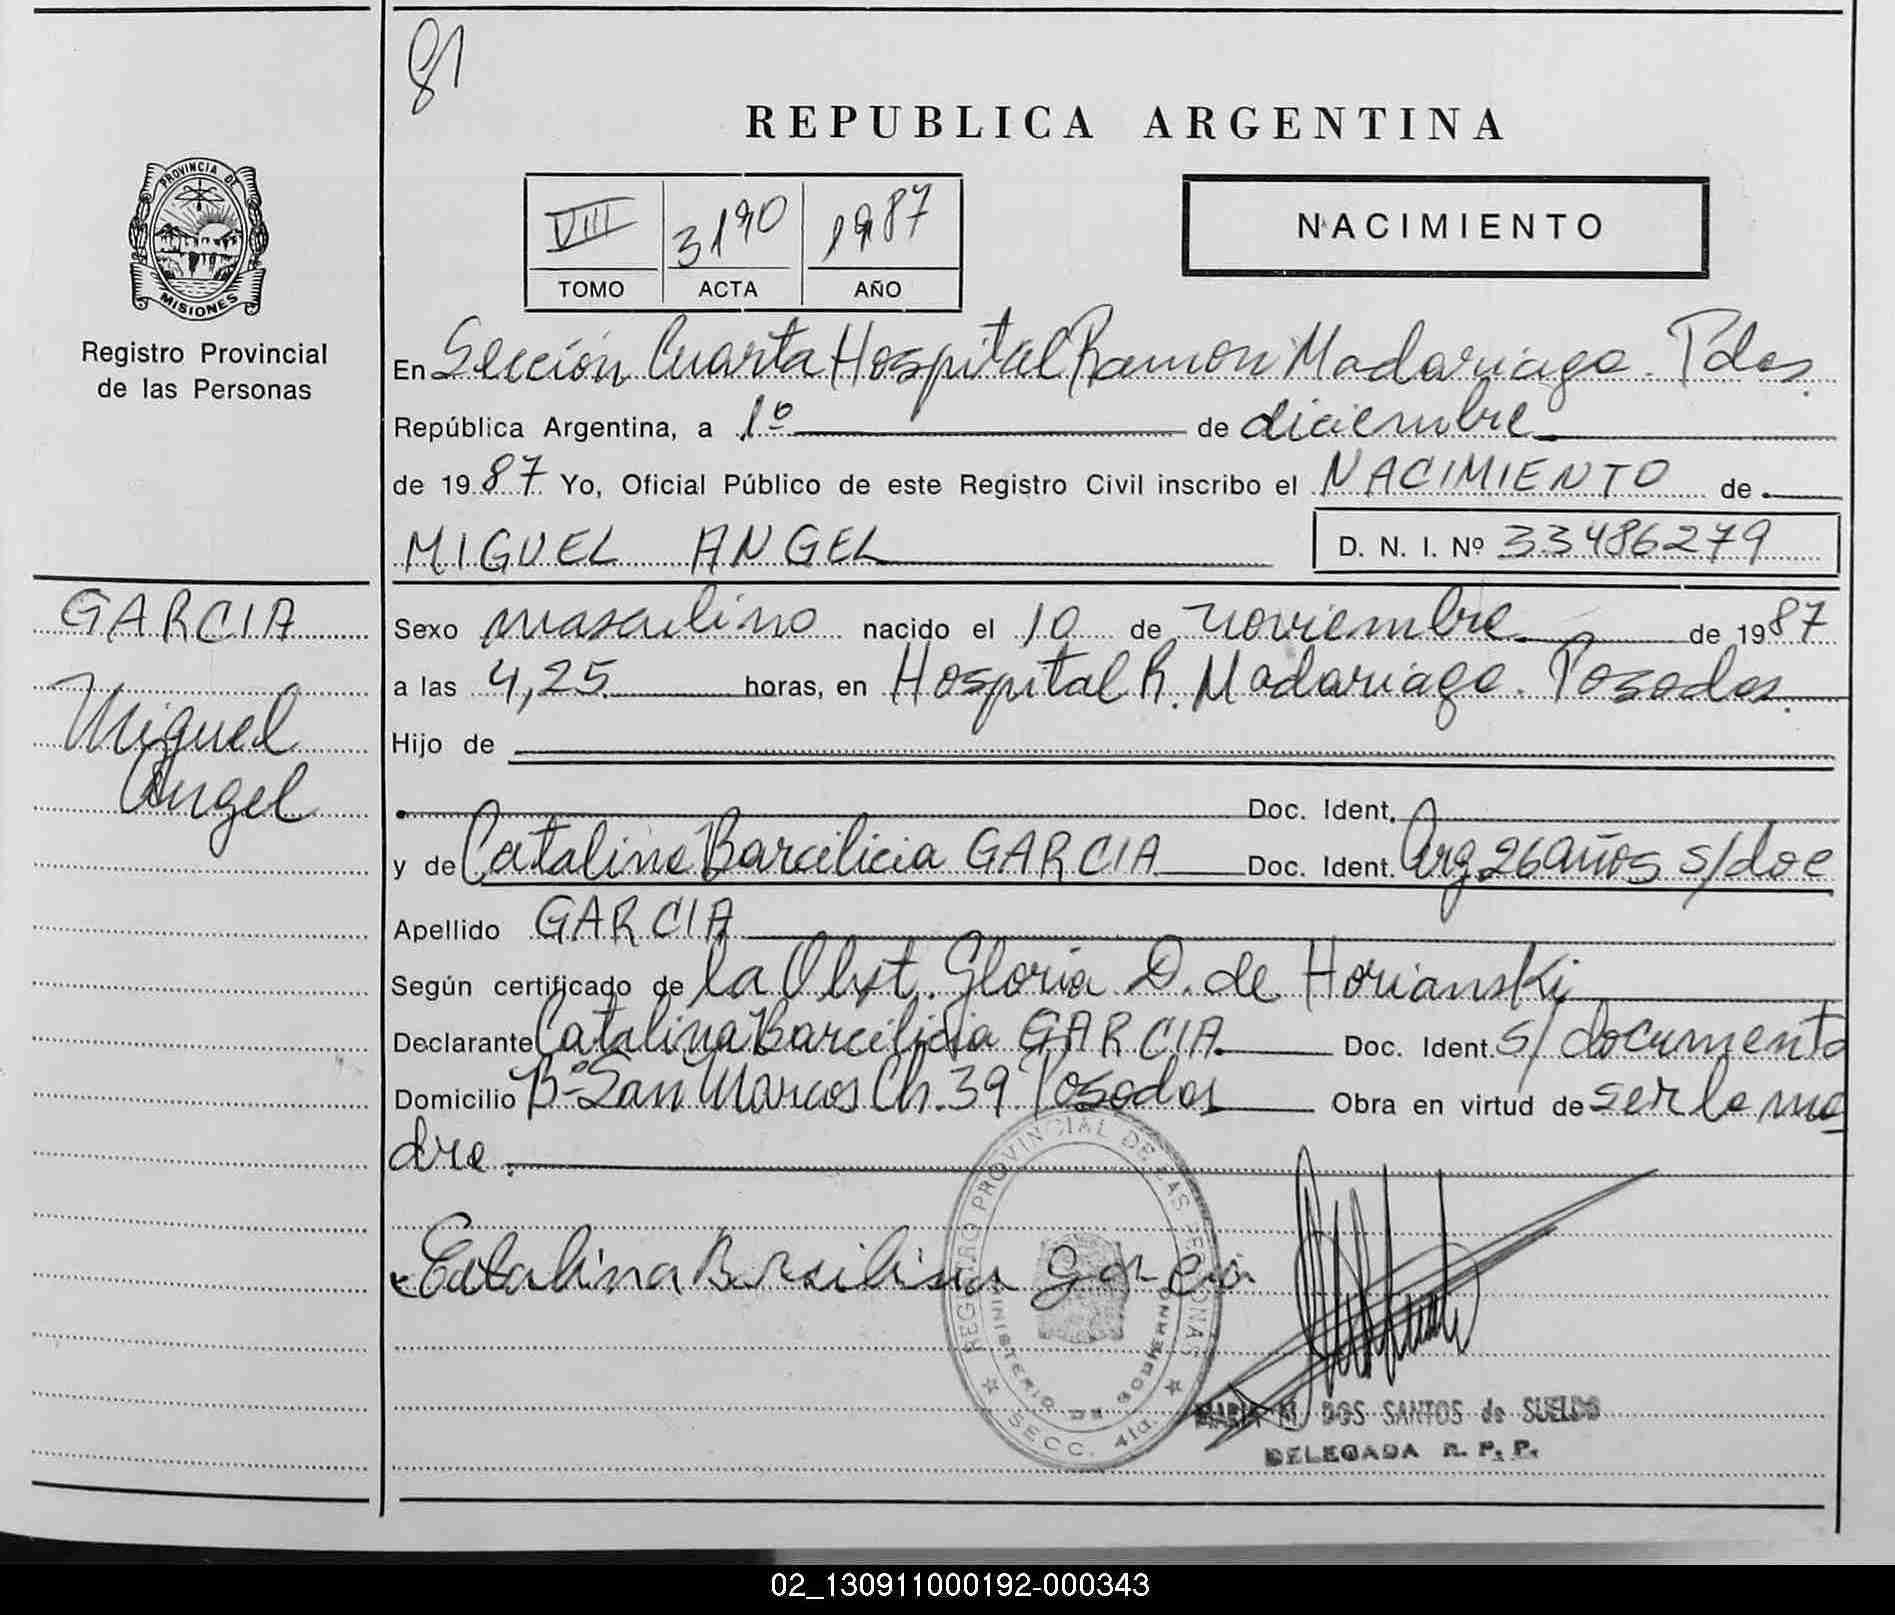 81
REPUBLICA ARGENTINA
PROVINCIA DE
MISIONES
Registro Provincial
de las Personas
VIII 3190 1987
TOMO ACTA AÑO
NACIMIENTO
En Sección Cuarta Hospital Ramon Madariaga. Pdas.
República Argentina, a 1º de diciembre
de 1987 Yo, Oficial Público de este Registro Civil inscribo el NACIMIENTO de
MIGUEL ANGEL D. N. I. Nº 33486279
GARCIA
Miguel
Angel
Sexo masculino nacido el 10 de noviembre de 1987
a las 4,25 horas, en Hospital R. Madariaga. Posadas.
Hijo de
Doc. Ident.
y de Catalina Barcilicia GARCIA Doc. Ident. Arg. 26 años s/doc
Apellido GARCIA
Según certificado de la Obst. Gloria D. de Horianski
Declarante Catalina Barcilicia GARCIA Doc. Ident. s/documento
Domicilio Bº San Marcos Ch. 39 Posadas Obra en virtud de ser la ma
dre.
Catalina Brsilisia Garcia
REGISTRO PROVINCIAL DE LAS PERSONAS
MINISTERIO DE GOBIERNO
SECC. 4ta.
MARIA M. DOS SANTOS de SUELDO
DELEGADA R. P. P.
02_130911000192-000343